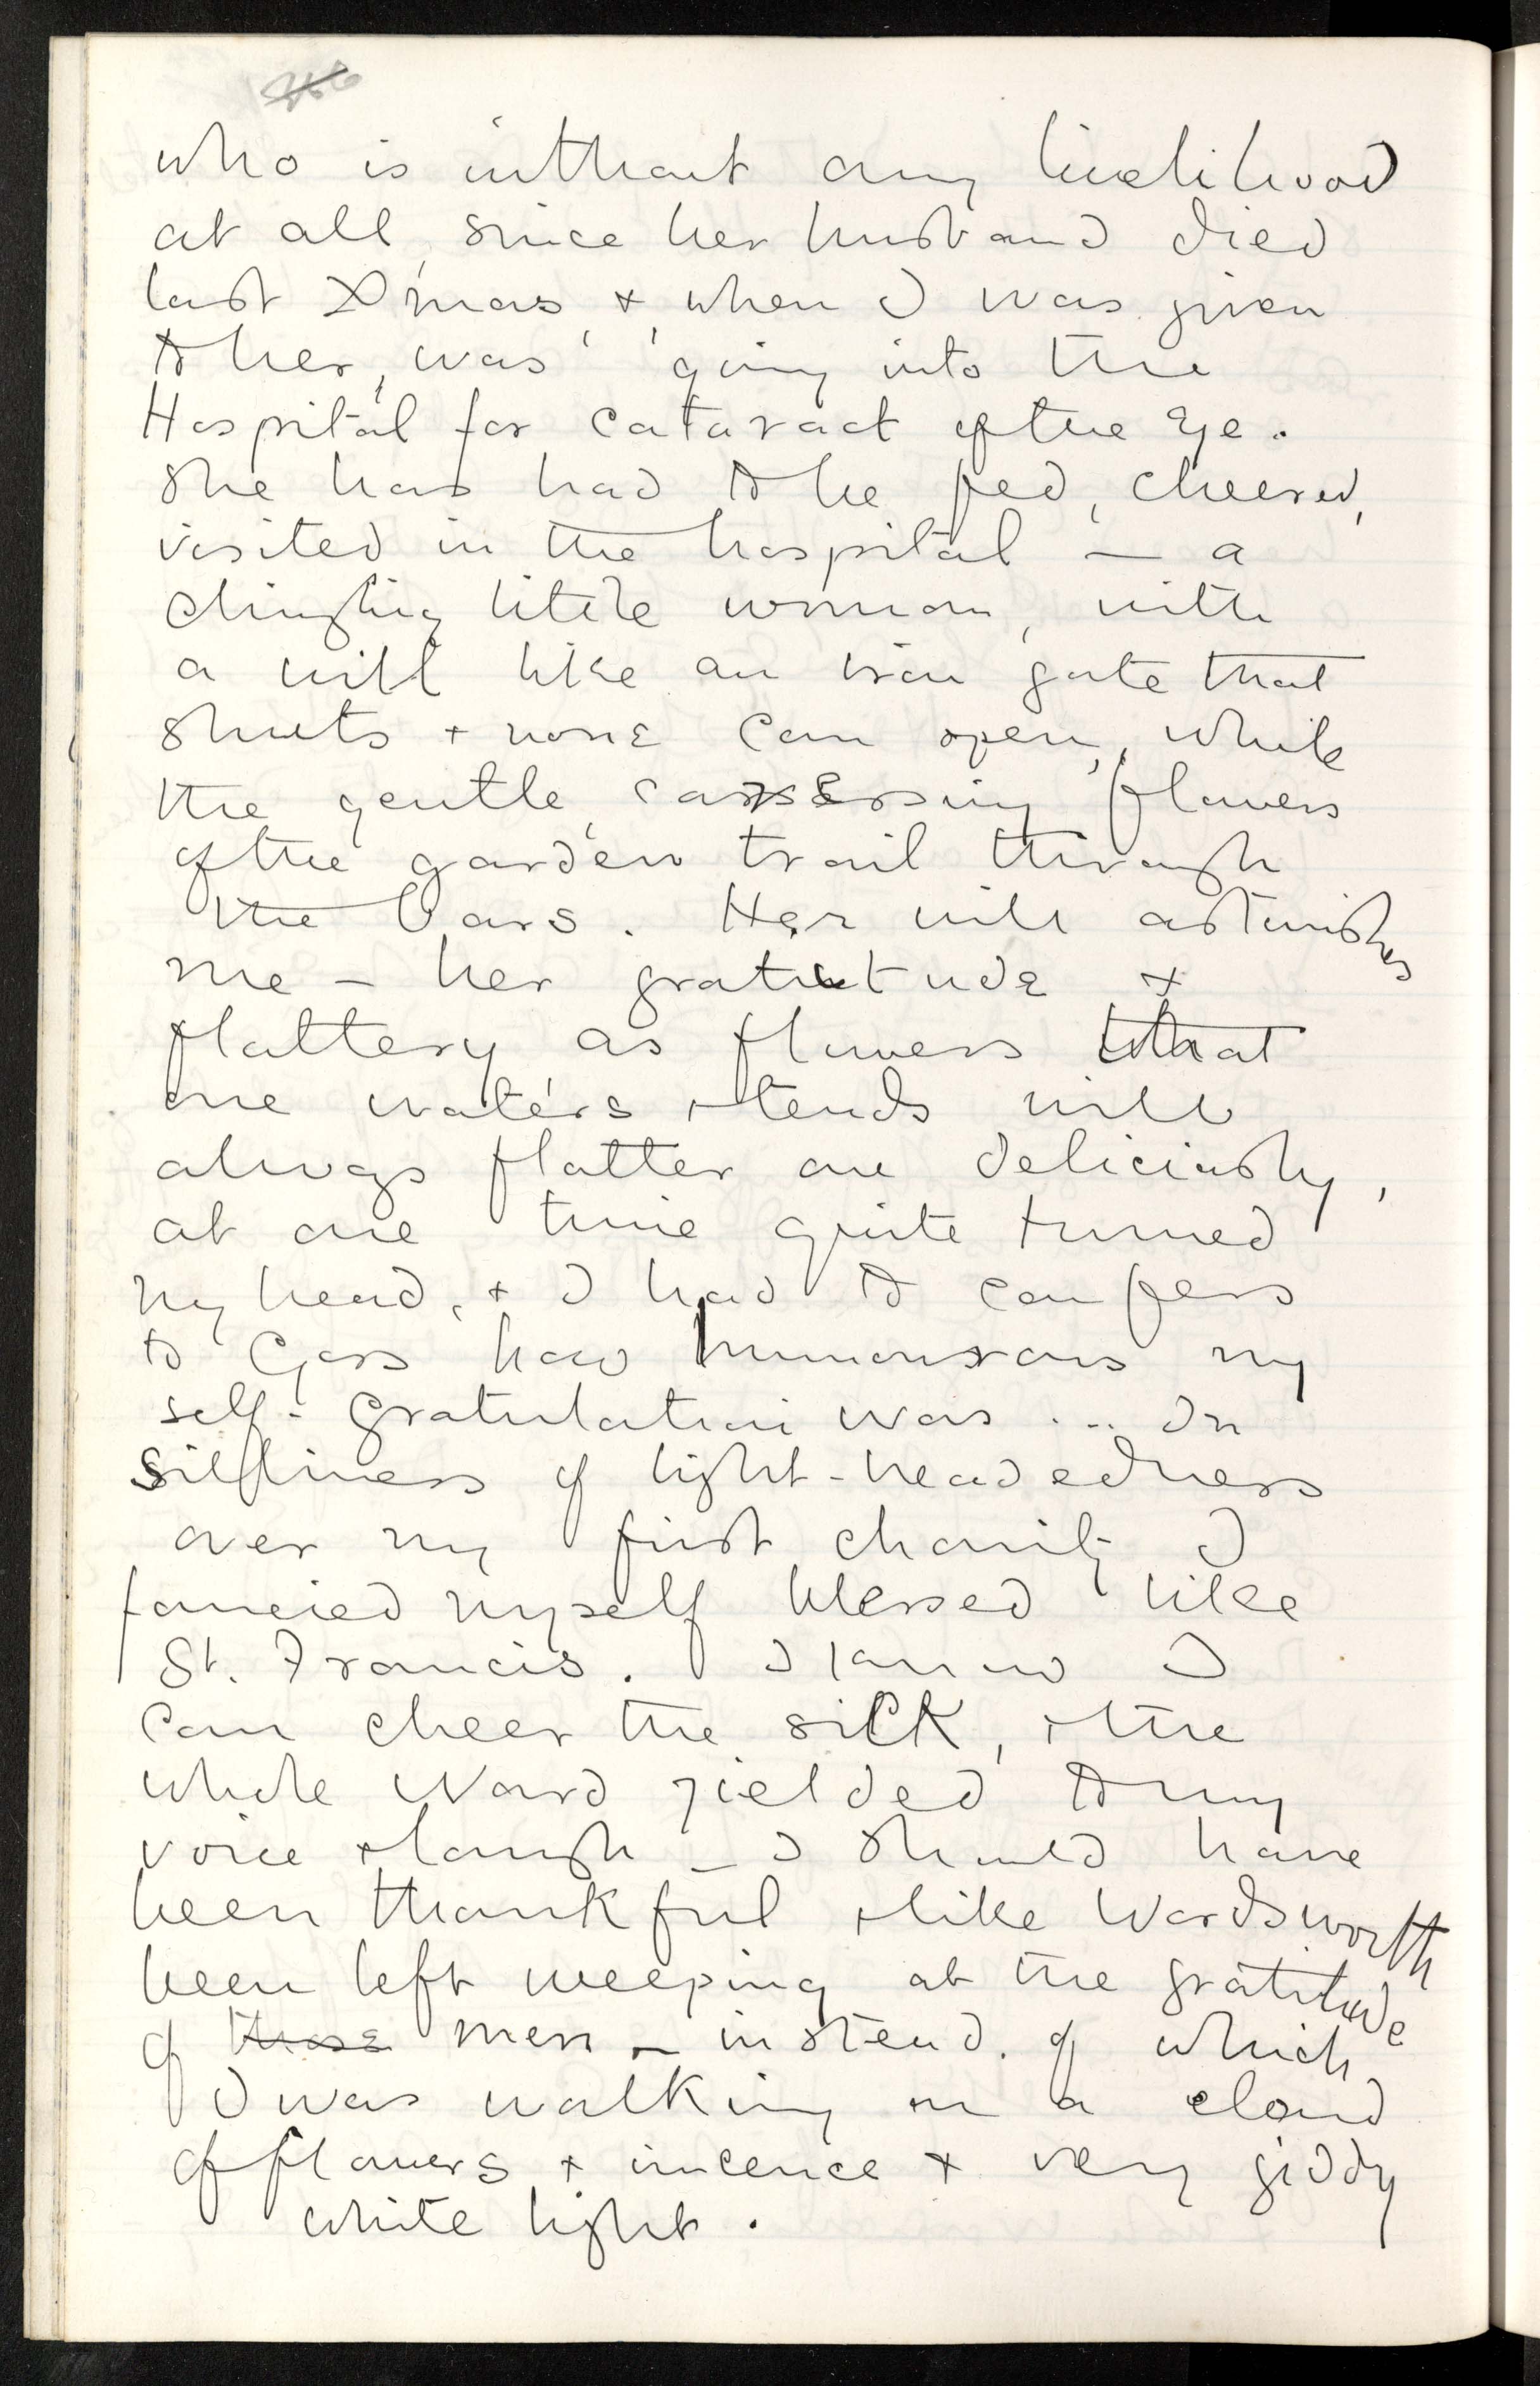 who is without any livelihood
at all, since her husband died
last Xmas, & when I was given
to her, was going into the
Hospital for cataract of the Eye.
She has had to be fed, cheered,
visited in the hospital – a
clinging little woman, with
a will like an iron gate that
shuts & none can open, while
the gentle, caressing flowers
of the garden trail through
the bars. Her will astonishes
me – her gratitude &
flattery as flowers that
one waters & tends will
always flatter one deliciously,
at one time quite turned
my head, & I had to confess
to Goss how humourous my
self-gratulation was ... In
silliness of light-headedness
over my first charity I
fancied myself blessed like
St. Francis. I know I
can cheer the sick, & the
whole Ward yielded to my
voice & laugh – I should have
been thankful & like Wordsworth
been left weeping at the gratitude
of these men – instead of which
I was walking on a cloud
of flowers & incence & very giddy
white light.